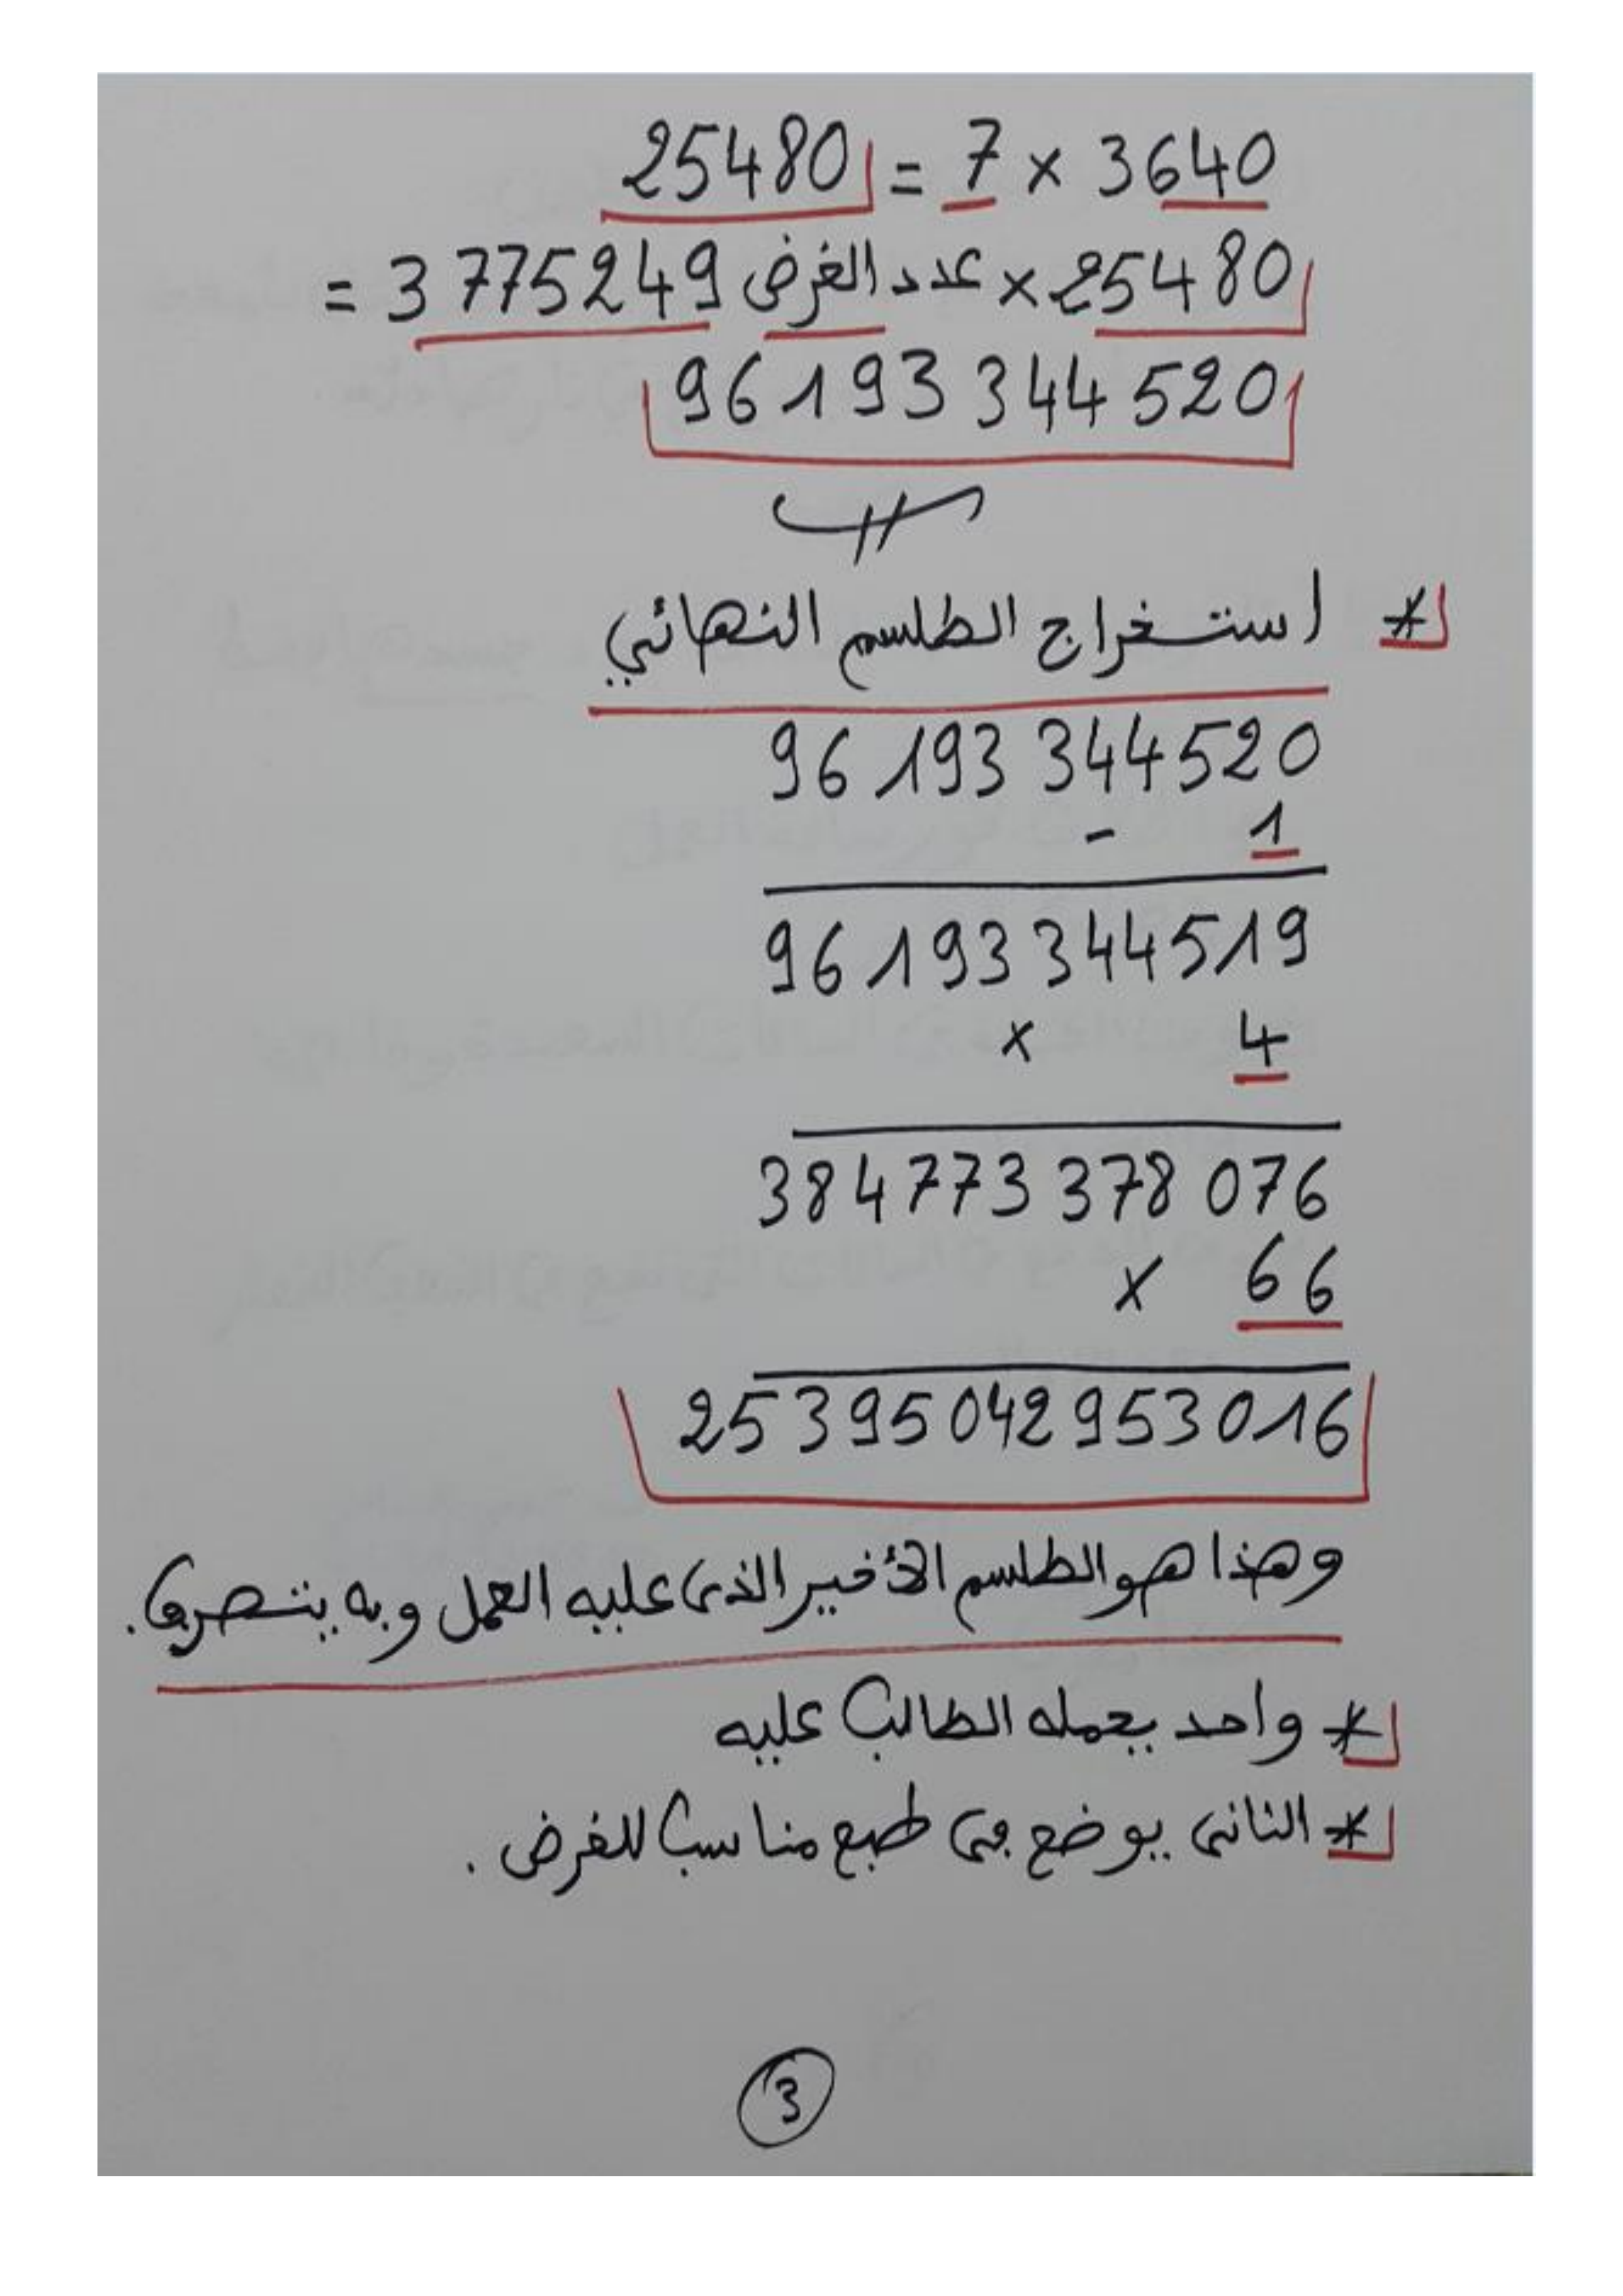 25480 = 7 × 3640
= 3775249 عدد الغرض × 25480
96193344520
* استخراج الطلسم النهائي
96193344520
- 1
96193344519
× 4
384773378076
× 66
25395042953016
وهذا هو الطلسم الأخير الذي عليه العمل وبه يتصرف.
* واحد يحمله الطالب عليه
* الثاني يوضع في طبع مناسب للغرض.
3